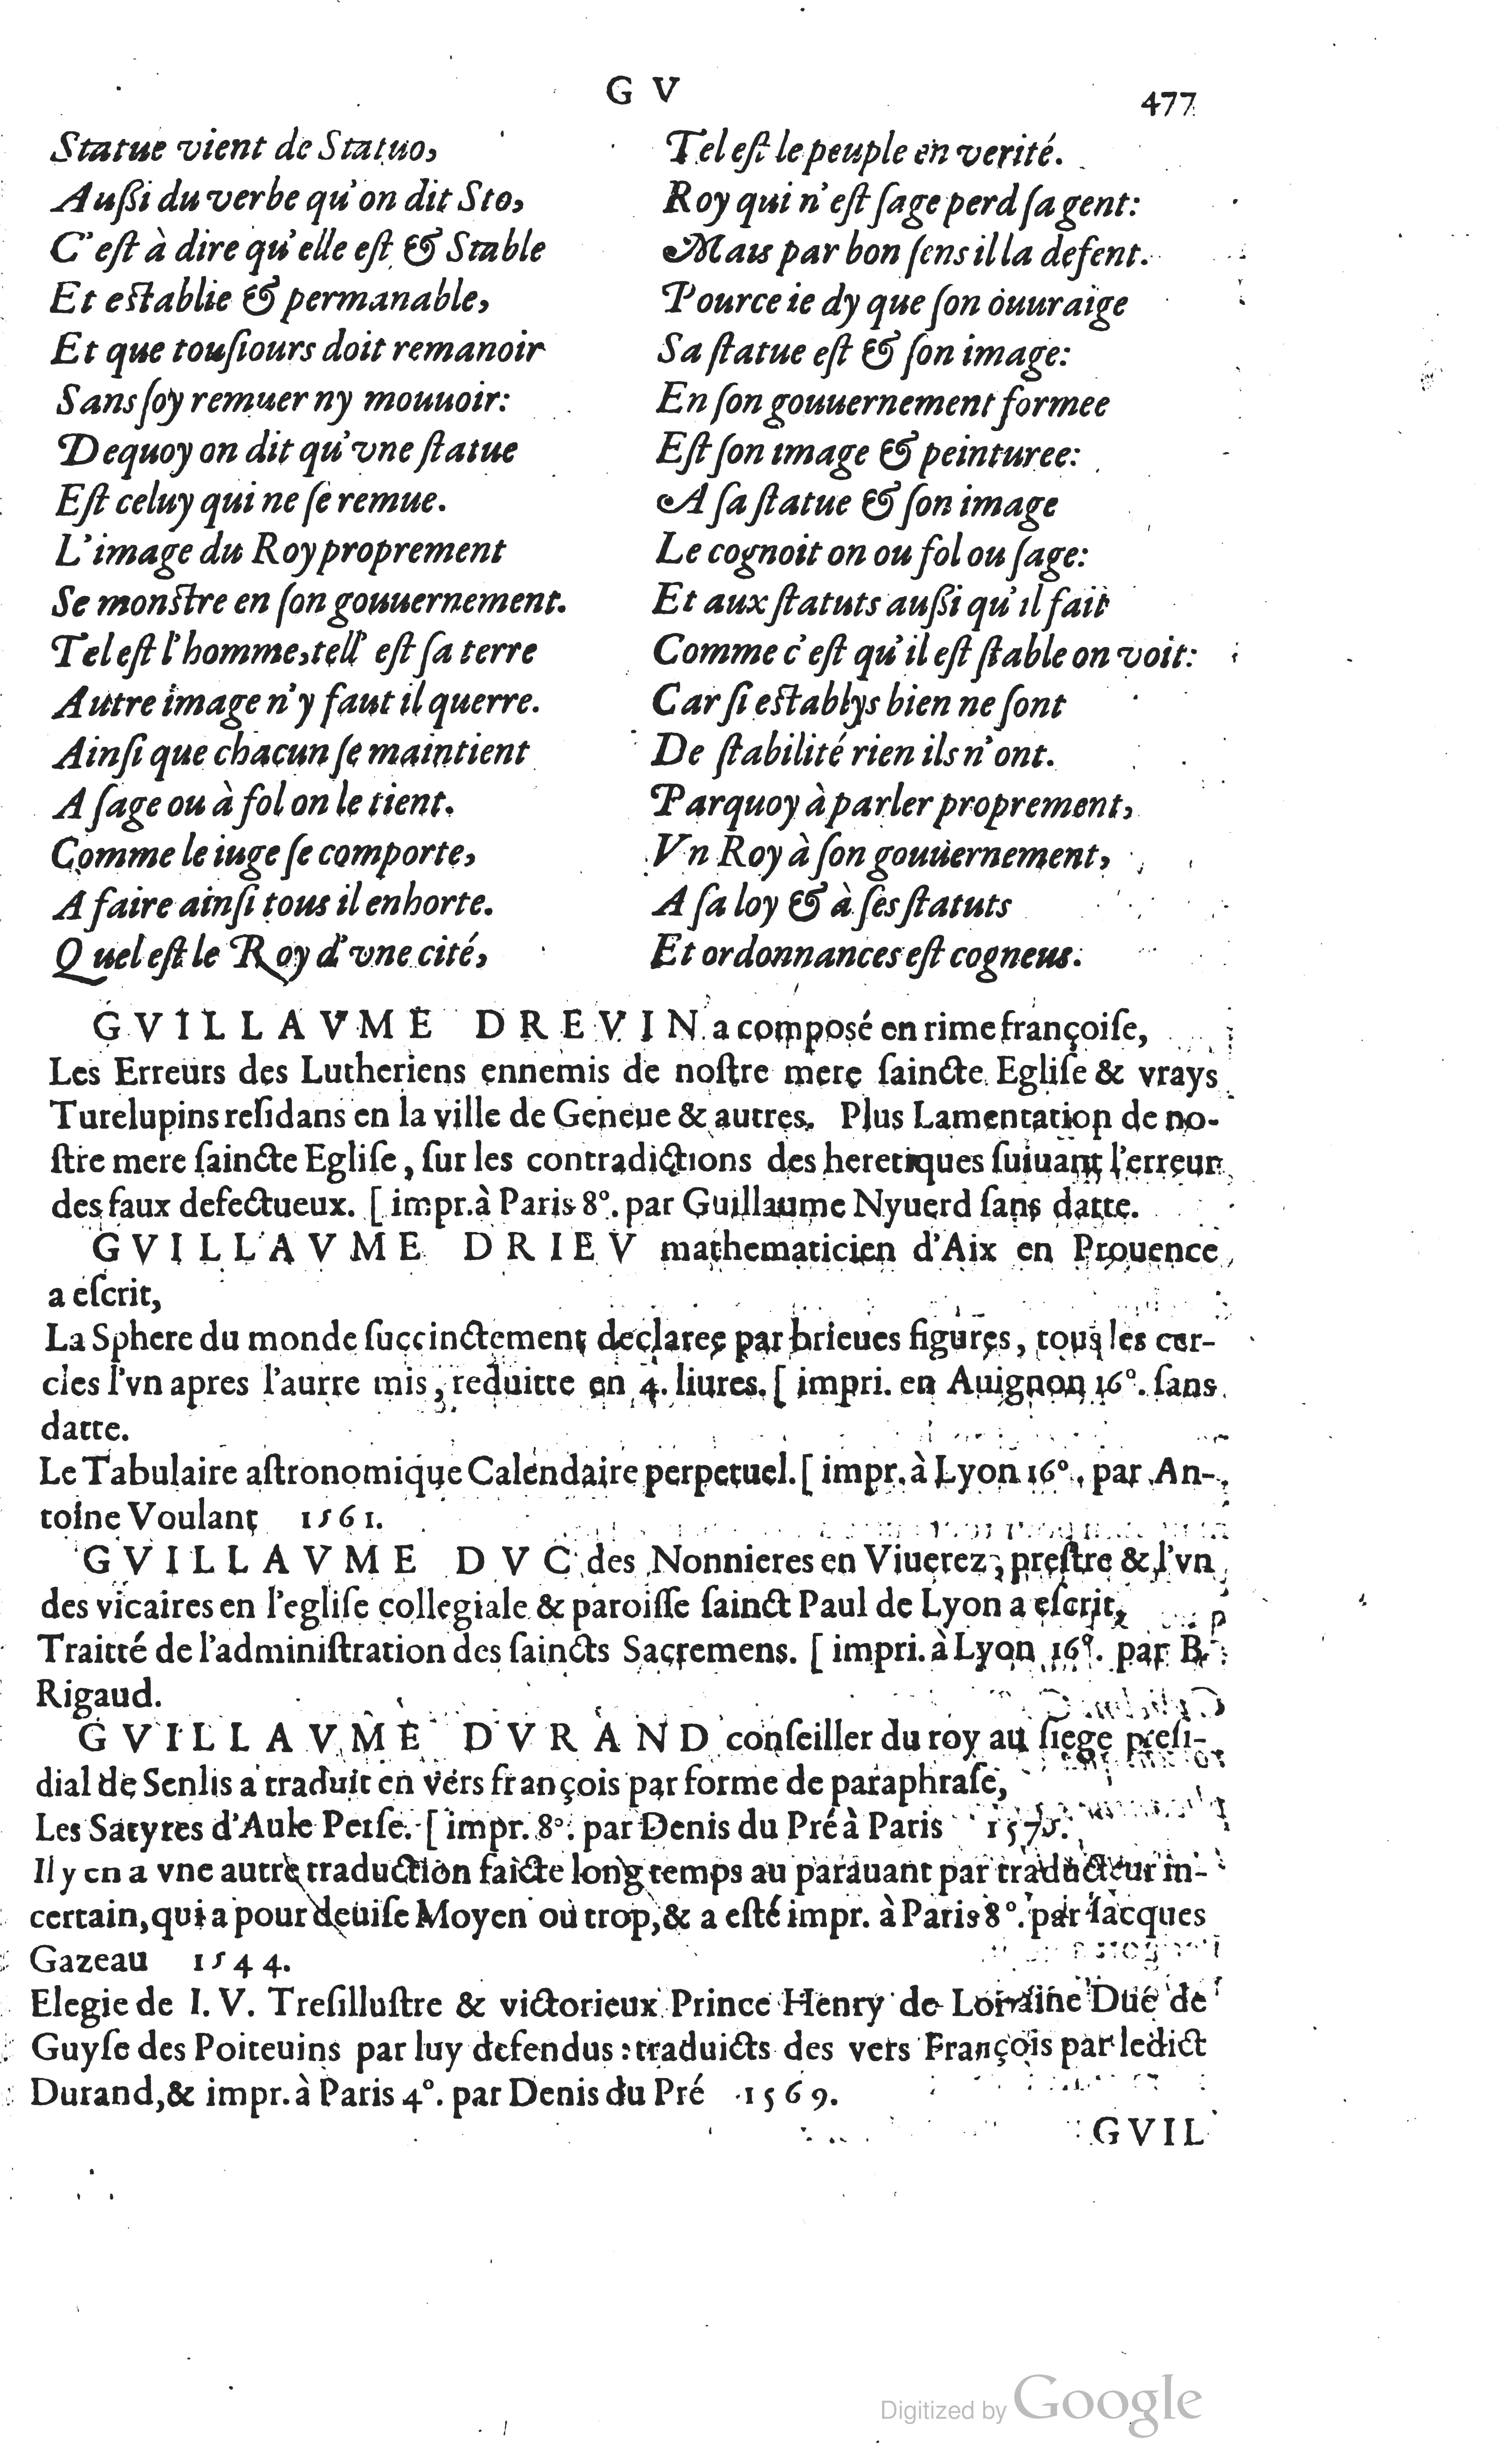 G V
477
Statue vient de Statuo,
Außi du verbe qu'on dit Sto,
C'eſt à dire qu'elle eſt & Stable
Et eſtablie & permanable,
Et que touſiours doit remanoir
Sans ſoy remuer ny mouuoir:
Dequoy on dit qu'vne ſtatue
Eſt celuy qui ne ſe remue.
L'image du Roy proprement
Se monſtre en ſon gouuernement.
Tel eſt l'homme, tell' eſt ſa terre
Autre image n'y faut il querre.
Ainſi que chacun ſe maintient
A ſage ou à fol on le tient.
Comme le iuge ſe comporte,
A faire ainſi tous il enhorte.
Quel eſt le Roy d'vne cité,
Tel eſt le peuple en verité.
Roy qui n'eſt ſage perd ſa gent:
Mais par bon ſens il la defent.
Pource ie dy que ſon ouuraige
Sa ſtatue eſt & ſon image:
En ſon gouuernement formee
Eſt ſon image & peinturee:
A ſa ſtatue & ſon image
Le cognoit on ou fol ou ſage:
Et aux ſtatuts außi qu'il fait
Comme c'eſt qu'il eſt ſtable on voit:
Car ſi eſtablys bien ne ſont
De ſtabilité rien ils n'ont.
Parquoy à parler proprement,
Vn Roy à ſon gouuernement,
A ſa loy & à ſes ſtatuts
Et ordonnances eſt cogneus.
GVILLAVME DREVIN a composé en rime françoiſe,
Les Erreurs des Lutheriens ennemis de noſtre mere ſaincte Egliſe & vrays
Turelupins reſidans en la ville de Geneue & autres. Plus Lamentation de no-
ſtre mere ſaincte Egliſe, ſur les contradictions des heretiques ſuiuant l'erreur
des faux defectueux. [ impr. à Paris 8°. par Guillaume Nyuerd ſans datte.
GVILLAVME DRIEV mathematicien d'Aix en Prouence
a eſcrit,
La Sphere du monde ſuccinctement declaree par brieues figures, tous les cer-
cles l'vn apres l'autre mis, reduitte en 4. liures. [ impri. en Auignon 16°. ſans
datte.
Le Tabulaire aſtronomique Calendaire perpetuel. [ impr. à Lyon 16°. par An-
toine Voulant 1561.
GVILLAVME DVC des Nonnieres en Viuerez, preſtre & l'vn
des vicaires en l'egliſe collegiale & paroiſſe ſainct Paul de Lyon a eſcrit,
Traitté de l'adminiſtration des ſaincts Sacremens. [ impri. à Lyon 16°. par B.
Rigaud.
GVILLAVME DVRAND conſeiller du roy au ſiege preſi-
dial de Senlis a traduit en vers françois par forme de paraphraſe,
Les Satyres d'Aule Perſe. [ impr. 8°. par Denis du Pré à Paris 1575.
Il y en a vne autre traduction faicte long temps au parauant par traducteur in-
certain, qui a pour deuiſe Moyen ou trop, & a eſté impr. à Paris 8°. par Iacques
Gazeau 1544.
Elegie de I. V. Treſilluſtre & victorieux Prince Henry de Lorraine Duc de
Guyſe des Poiteuins par luy defendus: traduicts des vers François par ledict
Durand, & impr. à Paris 4°. par Denis du Pré 1569.
GVIL
Digitized by Google